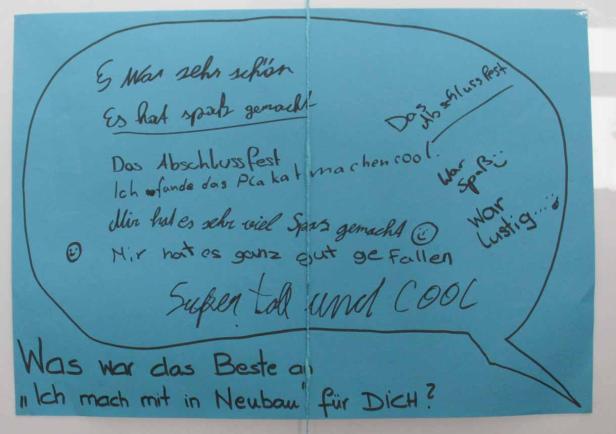 Es War sehr schön
Es hat spaß gemacht
Das Abschlussfest
Das Abschlussfest
Ich fande das Plakat machen cool!
War Spaß
Mir hat es sehr viel Spaß gemacht
War Lustig....
Mir hat es ganz gut gefallen
Super toll und COOL
Was war das Beste an
"Ich mach mit in Neubau" für DICH?